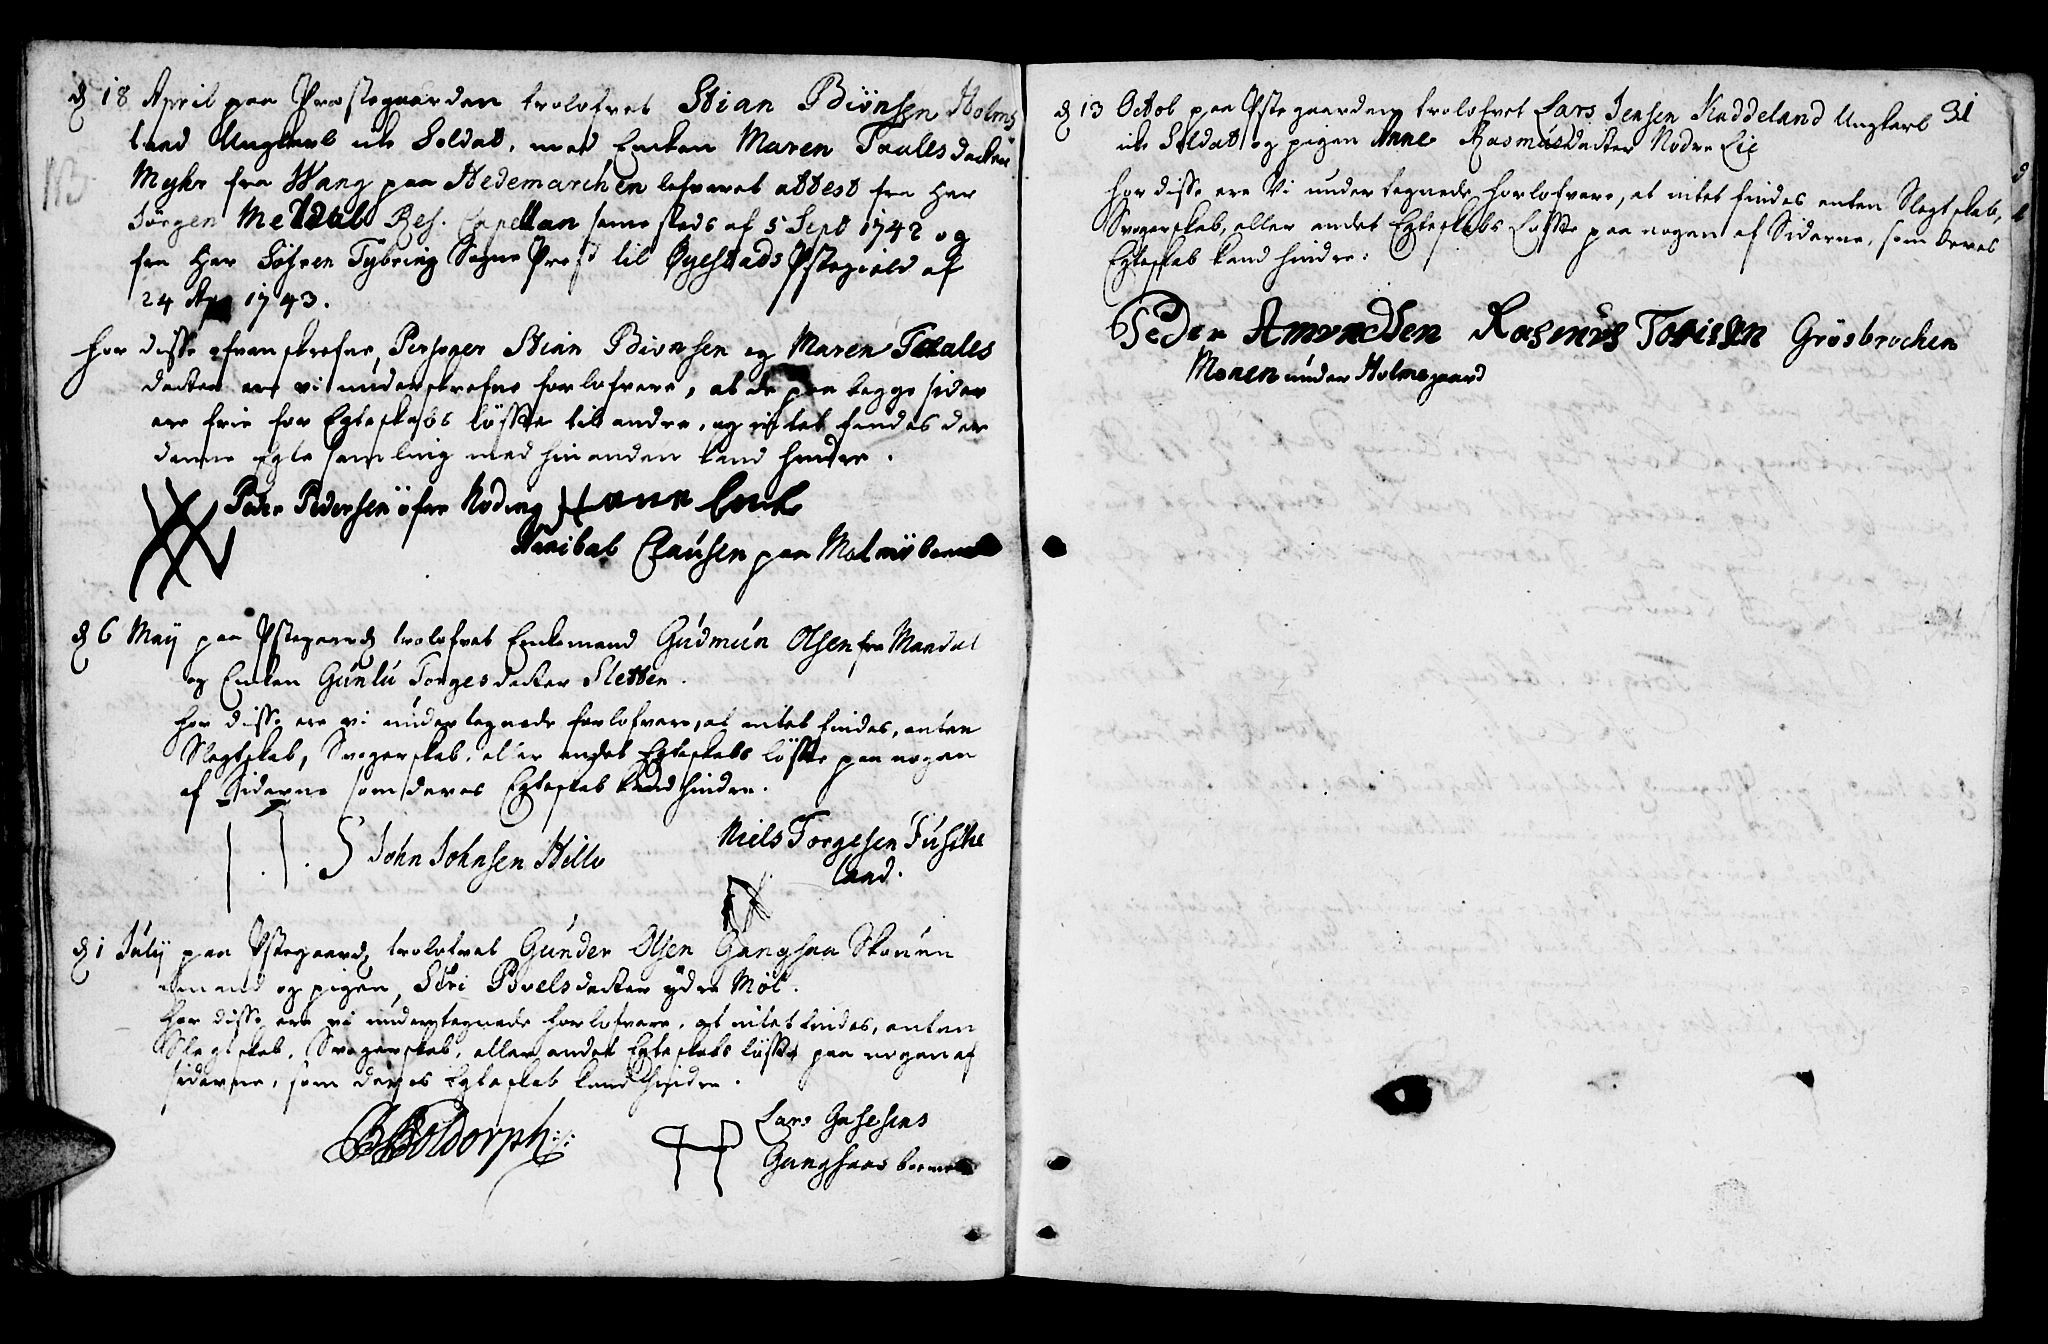 d 18 April paa Præstegaarden trolofvet Stian Biönsen Holms
land Ungkarl uh Soldat, med Enken Maren Taalesdatter
NB
Myhr fra Wang paa Hedemarchen lefveret attest fra Her
Jörgen Meldal Res. Capellan sammesteds af 5 Sept 1742 og
fra Her Söfren Tybring Sogne Præst til Øyestads Præstegield af
24 Apr 1743.
For disse ofvenskrefne Personer Stian Bionsen og Maren Taales
datter ere vi underskrefne forlofvere, at de paa begge sider
ere frie for Egteskabs löffte til andre, og intet findes der
denne Egte samling med hinanden kand hindre.
Peder Pedersen öfre Roding
Hanibal Clausen paa Molmii
d 6 Maÿ paa Pstegaard trolofvet Enkemand Gudmun Olsen fra Mandal
og Enken Gunlu Torgesdatter Sletten.
For disse ere vi undertegnede forlofvere, at intet findes, enten
Slegtskab, Svogerskab, eller andet Egteskabs löffte paa nogen
af Siderne som deres Egteskab kand hindre.
John Johnsen Hille
Niels Torgesen Fuskel
land.
d 1 Julÿ paa Pstegaard trolofvet Gunder Olsen Gangsaa
og pigen Siri Povelsdatter ydre Möl.
For disse ere vi undertegnede forlofvere, at intet findes, enten
Slegtskab, Svogerskab, eller andet Egteskabs löffte paa nogen af
siderne, som deres Egteskab kand hindre.
B Boldorph
Lars
Gangsaas
31
d 13 Octob paa Pstegaarden trolofvet Lars Jensen Kaddeland Ungkarl
uh Soldat og pigen Anne Rasmusdatter Nodre Lie
For disse ere Vi undertegnede forlofvere, at intet findes enten Slegtskab,
Svogerskab, eller andet Egteskabs Löffte paa nogen af Siderne, som deres
Egteskab kand hindre:
Peder Amundsen Rasmus Torissen Grösbrochen
Monen under Holmegaard